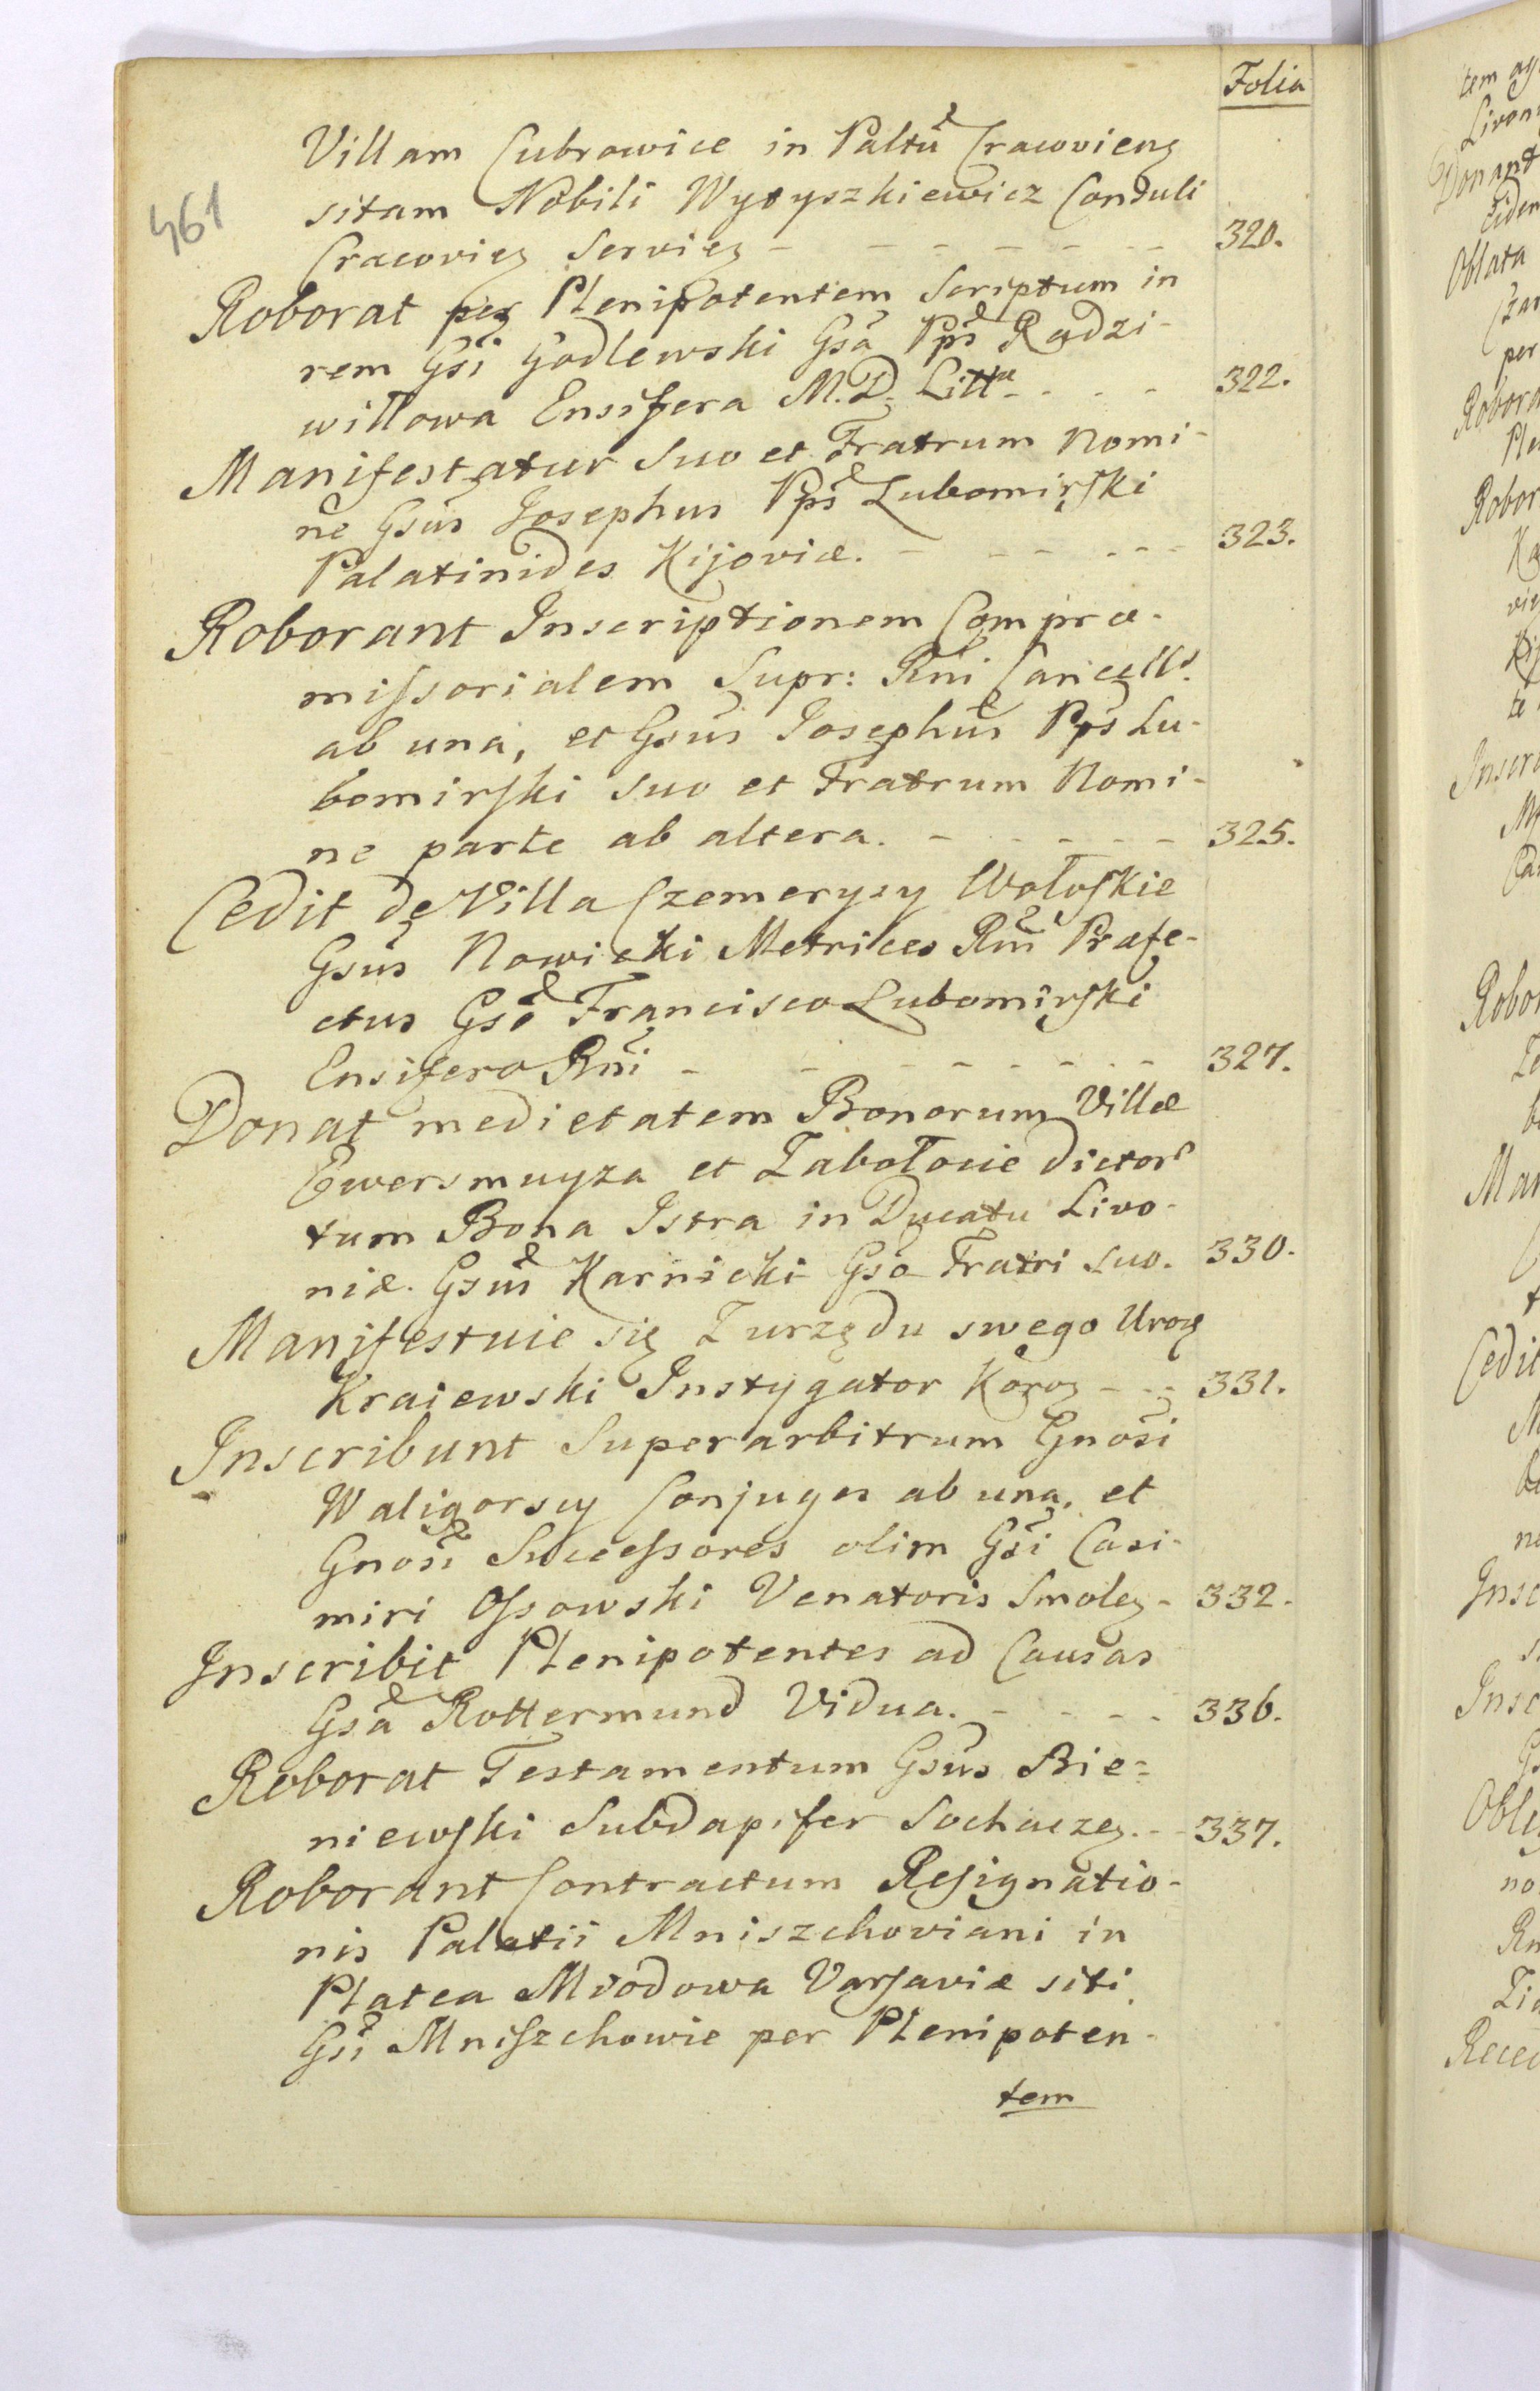 Folia
461
Villam Cubrowice in Palttū Cracovien͡z
sitam Nobili Wytyszkiewicz Conduli
Cracovien͡z Servien͡z - - - - - - - 320.
Roborat per Plenipotentem Scriptum in
rem Gsi Godlewski Gsa Pps Radzi-
willowa Ensifera M.D. Litt. - - - - 322.
Manifestatur suo et Fratrum Nomi-
ne Gsus Josephus Pps Lubomirski
Palatinides Kijoviæ. - - - - - - 323.
Roborant Inscriptionem Compro-
missorialem Supr: Rni Cancell.
ab una, et Gsus Josephus Pps Lu-
bomirski suo et Fratrum Nomi-
ne parte ab altera. - - - - - - 325.
Cedit de Villa Czemerysy Wołoskie
Gsus Nowicki Metrices Rni Præfe-
ctus Gso Francisco Lubomirski
Ensifero Rni - - - - - - - 327.
Donat medietatem Bonorum Villæ
Ewersmuyza et Zabołocie dictor
tum Bona Istra in Ducatu Livo-
niæ. Gsus Karnicki Gso Fratri suo. 330.
Manifestuie się Z urzędu swego Uroz
Kraiewski Instygator Koroz - - - 331.
Inscribunt Superarbitrum Gnosi
Waligorscy Conjuges ab una, et
Gnosi Successores olim Gsi Casi-
miri Ossowski Venatoris Smolez - 332.
Inscribit Plenipotentes ad Causas
Gsa Rottermund Vidua. - - - - - 336.
Roborat Testamentum Gsus Bie-
niewski Subdapifer Sochaczez. - - 337.
Roborant Contractum Resignatio-
nis Palatii Mniszchoviani in
Platea Miodowa Varsaviæ siti
Gsi Mniszchowie per Plenipoten-
tem